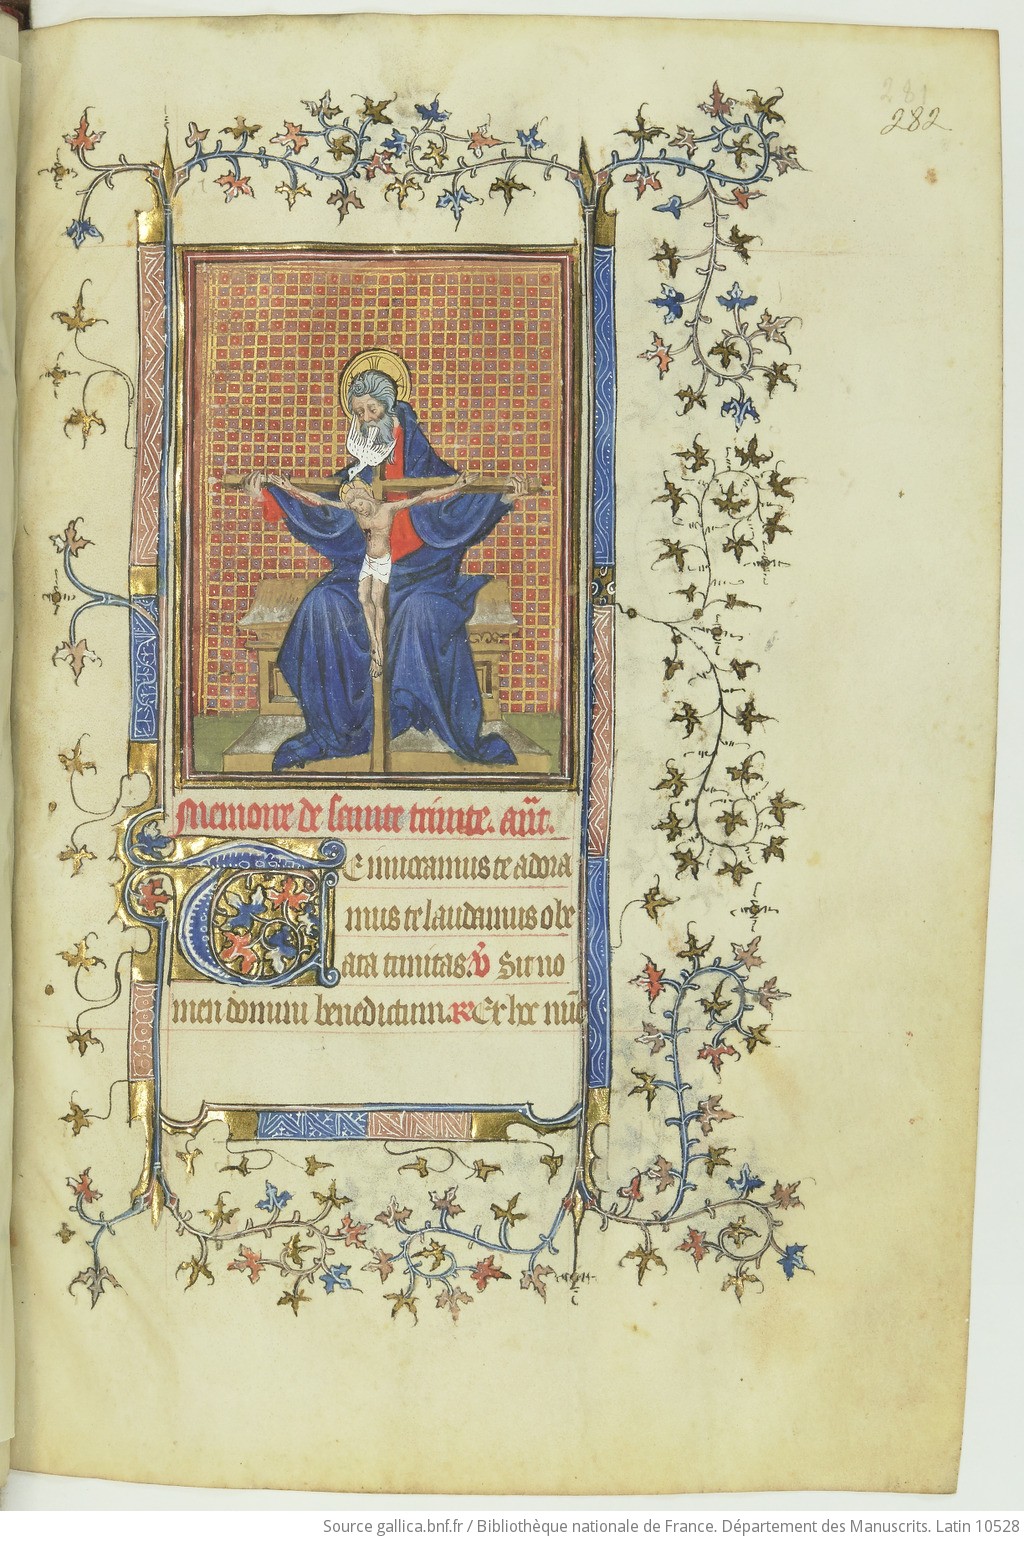 281
282
Memoire de sainte trinite. añt.
Te inuocamus te adora
mus te laudamus o be
ata trinitas. V̇ Sit no
men domini benedictum. R Ex hoc nūc
Source gallica.bnf.fr / Bibliothèque nationale de France. Département des Manuscrits. Latin 10528